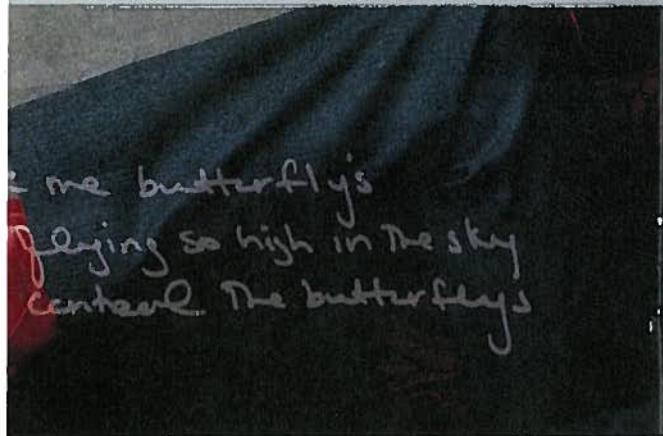 me butterfly's
flying so high in the sky
control the butterflys